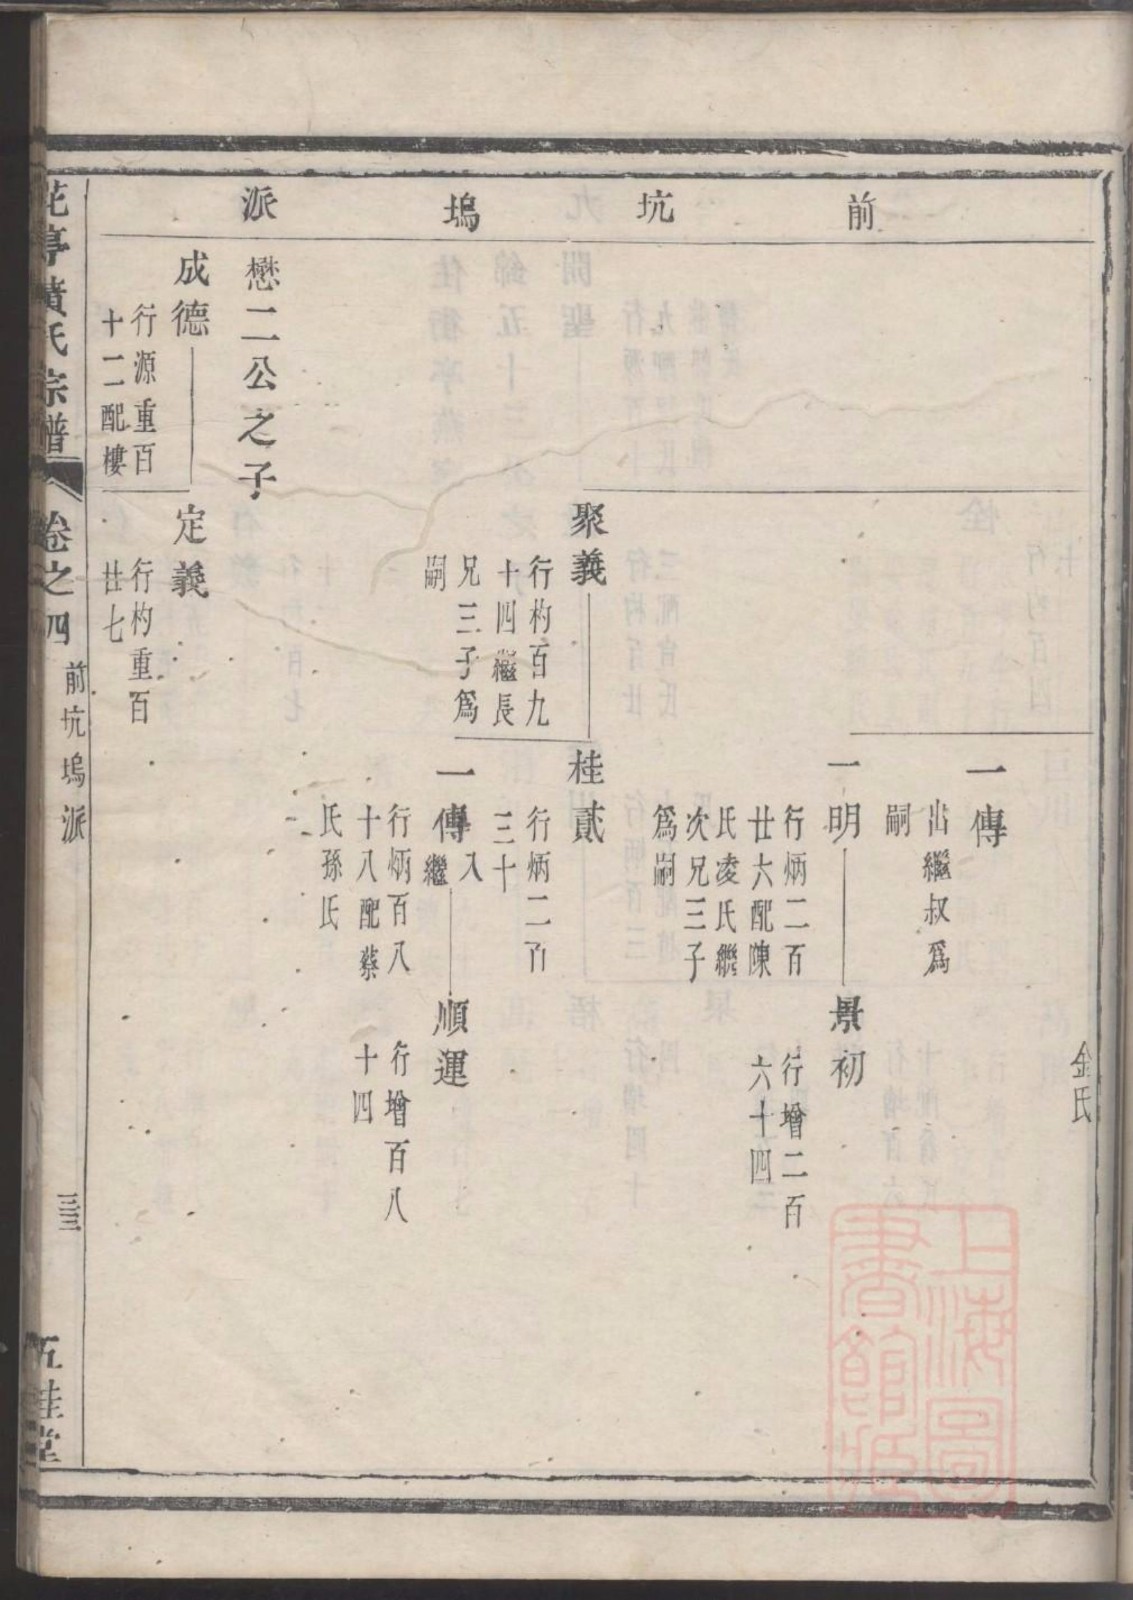 前坑塢派
金氏
一傳
出繼叔爲
嗣
一明
行炳二百
廿六配陳
氏凌氏繼
次兄三子
爲嗣
景初
行增二百
六十四
聚義
行杓百九
十四繼長
兄三子爲
嗣
桂貳
行炳二百
三十
一傳
入繼
行炳百八
十八配蔡
氏孫氏
順運
行增百八
十四
懋二公之子
成德
行源重百
十二配樓
定義
行杓重百
廿七
花亭黃氏宗譜
卷之四
前坑塢派
三三
五桂堂
上海圖書館藏